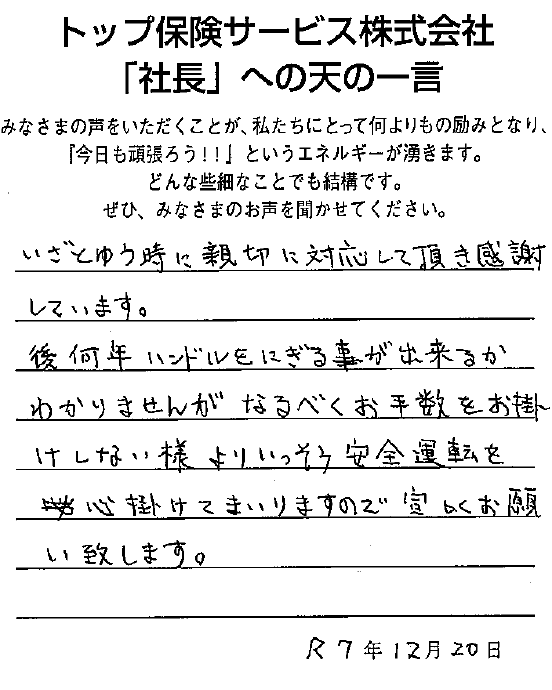 トップ保険サービス株式会社
「社長」への天の一言
みなさまの声をいただくことが、私たちにとって何よりもの励みとなり、
『今日も頑張ろう!!』というエネルギーが湧きます。
どんな些細なことでも結構です。
ぜひ、みなさまのお声を聞かせてください。
いざとゆう時に親切に対応して頂き感謝
しています。
後何年ハンドルをにぎる事が出来るか
わかりませんがなるべくお手数をお掛
けしない様よりいっそう安全運転を
心掛けてまいりますので宜しくお願
い致します。
R7年12月20日